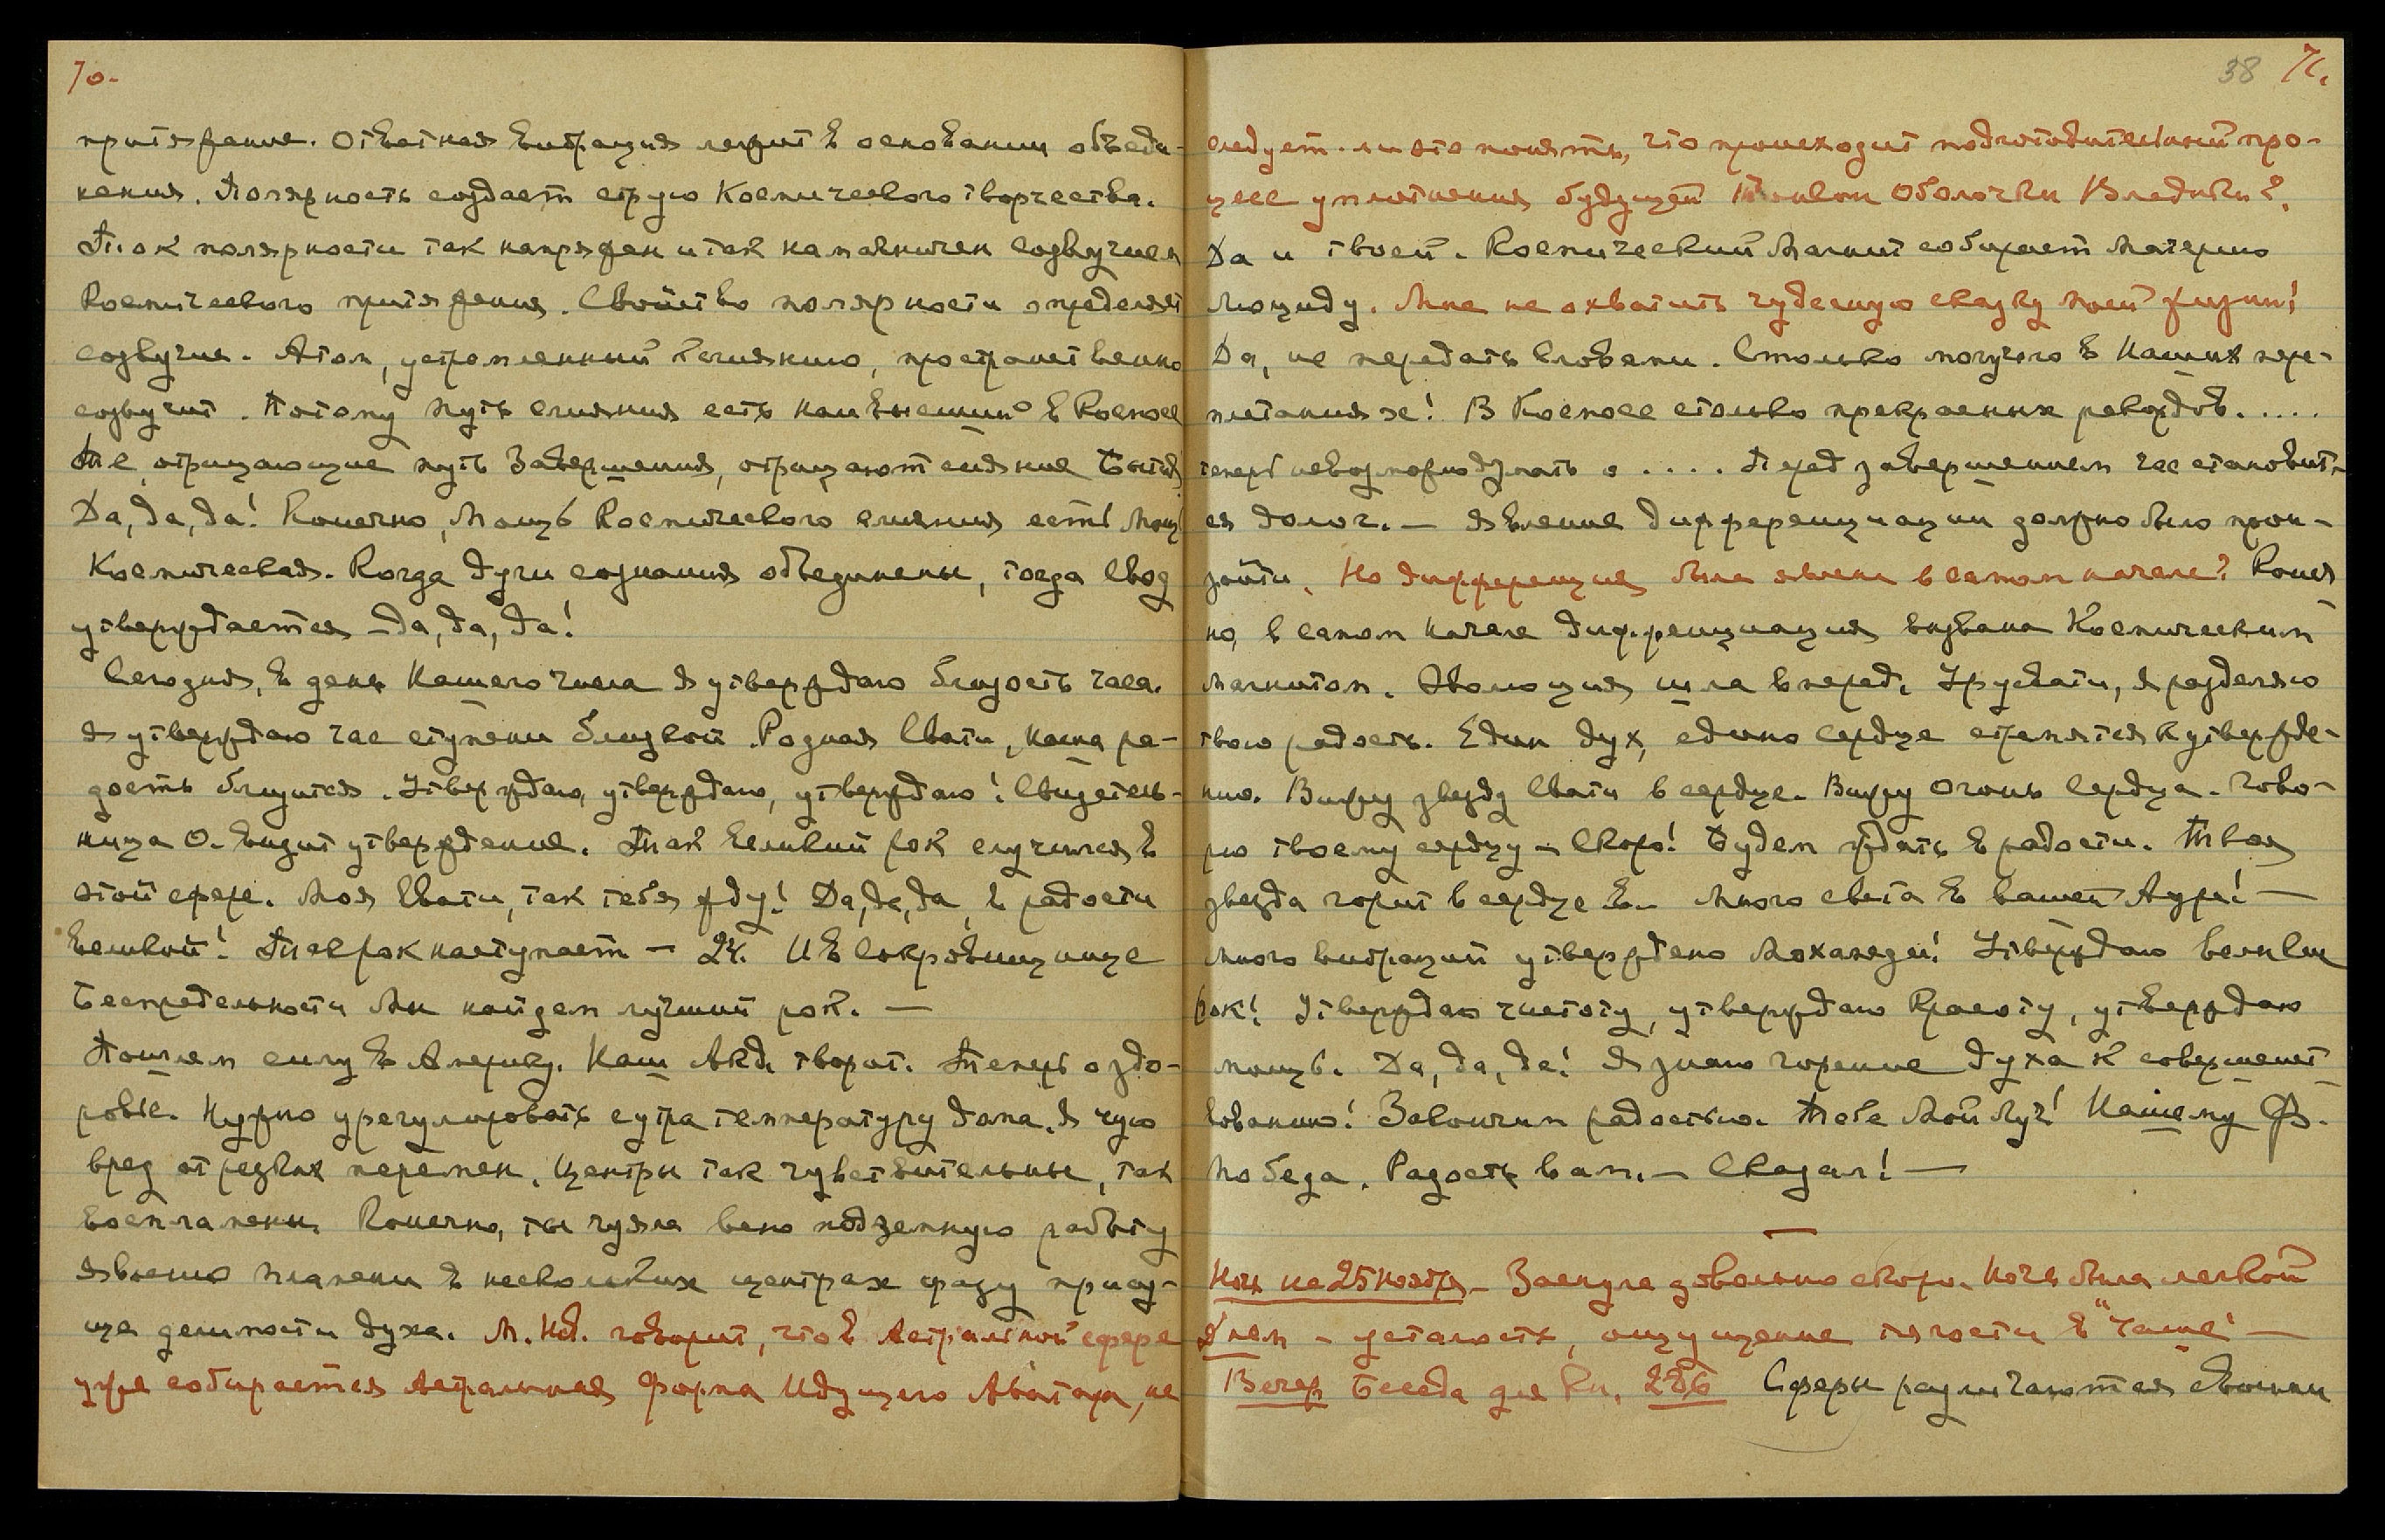 70.
притяжение. Ответная вибрация лежит в основании объеди-
нения. Полярность создает струю Космического творчества.
Ток полярности так напряжен и так наполнен созвучием
Космического притяжения. Свойство полярности определяет
созвучие. Атом, устремленный к слиянию, пространственно
созвучит. Потому путь слияния есть наивысший в Космосе
Те, отрицающие путь Завершения, отрицают сияние Бытия
Да, да, да! Конечно, Мощь Космического слияния есть Мощь
Космическая. Когда духи сознания объединены, тогда Свод
утверждается – да, да, да!
Сегодня, в день Нашего числа Я утверждаю близость часа.
Я утверждаю час ступени близкой. Родная Свати, наша ра-
дость близится. Утверждаю, утверждаю, утверждаю! Свидетель-
ница О. видит утверждение. Так великий рок случился в
этой сфере. Моя Свати, так тебя жду! Да, да, да, в радости
великой! Так рок наступает – 24. И в Сокровищнице
Беспредельности Мы найдем лучший рок. —
Пошлем силу в Америку. Наш Акд. творит. Теперь о здо-
ровье. Нужно урегулировать с утра температуру дома. Я чую
вред от резких перемен. Центры так чувствительны, так
воспламенены. Конечно, ты чуяла всю подземную работу
Явлению пламени в нескольких центрах сразу прису-
ща делимости духа. М. Наб. говорит, что в Астральной сфере
уже собирается Астральная Форма Идущего Аватара, не
38 71.
следует-ли это понять, что происходит подготовительный про-
цесс уплотнения будущей Тонкой Оболочки Владыки?
Да и твоей. Космический Магнит собирает Материю
Люциду. Мне не охватить чудесную сказку моей жизни!
Да, не передать словами. Столько могучего в Наших пере-
плетаниях! В Космосе столько прекрасных рекордов.....
теперь невозможно думать о .... Перед завершением час становит-
ся долог. – Явление дифференциации должно было прои-
зойти. Но дифференция была явлена в самом начале? Конеч
но, в самом начале дифференциация вызвана Космическим
Магнитом. Эволюция шла вперед. Урусвати, Я разделяю
твою радость. Един дух, едино сердце стремятся к утвержде-
нию. Вижу звезду Свати в сердце. Вижу Огонь Сердца. Гово-
рю твоему сердцу – Скоро! Будем ждать в радости. Твоя
звезда горит в сердце В. Много света в вашей Ауре! —
Много вибраций утверждено Мохакоган! Утверждаю великий
рок! Утверждаю чистоту, утверждаю Красоту, утверждаю
мощь. Да, да, да! Я знаю горение духа к совершенст
вованию! Закончим радостью. Тебе Мой Луч! Нашему Ф.
Победа. Радость вам. – Сказал! —
Ночь на 25 Ноября – Заснула довольно скоро. Ночь была легкой
Днем – усталость, ощущение тягости в "Чаше" —
Вечер Беседа для Кн. Сферы различаются своими